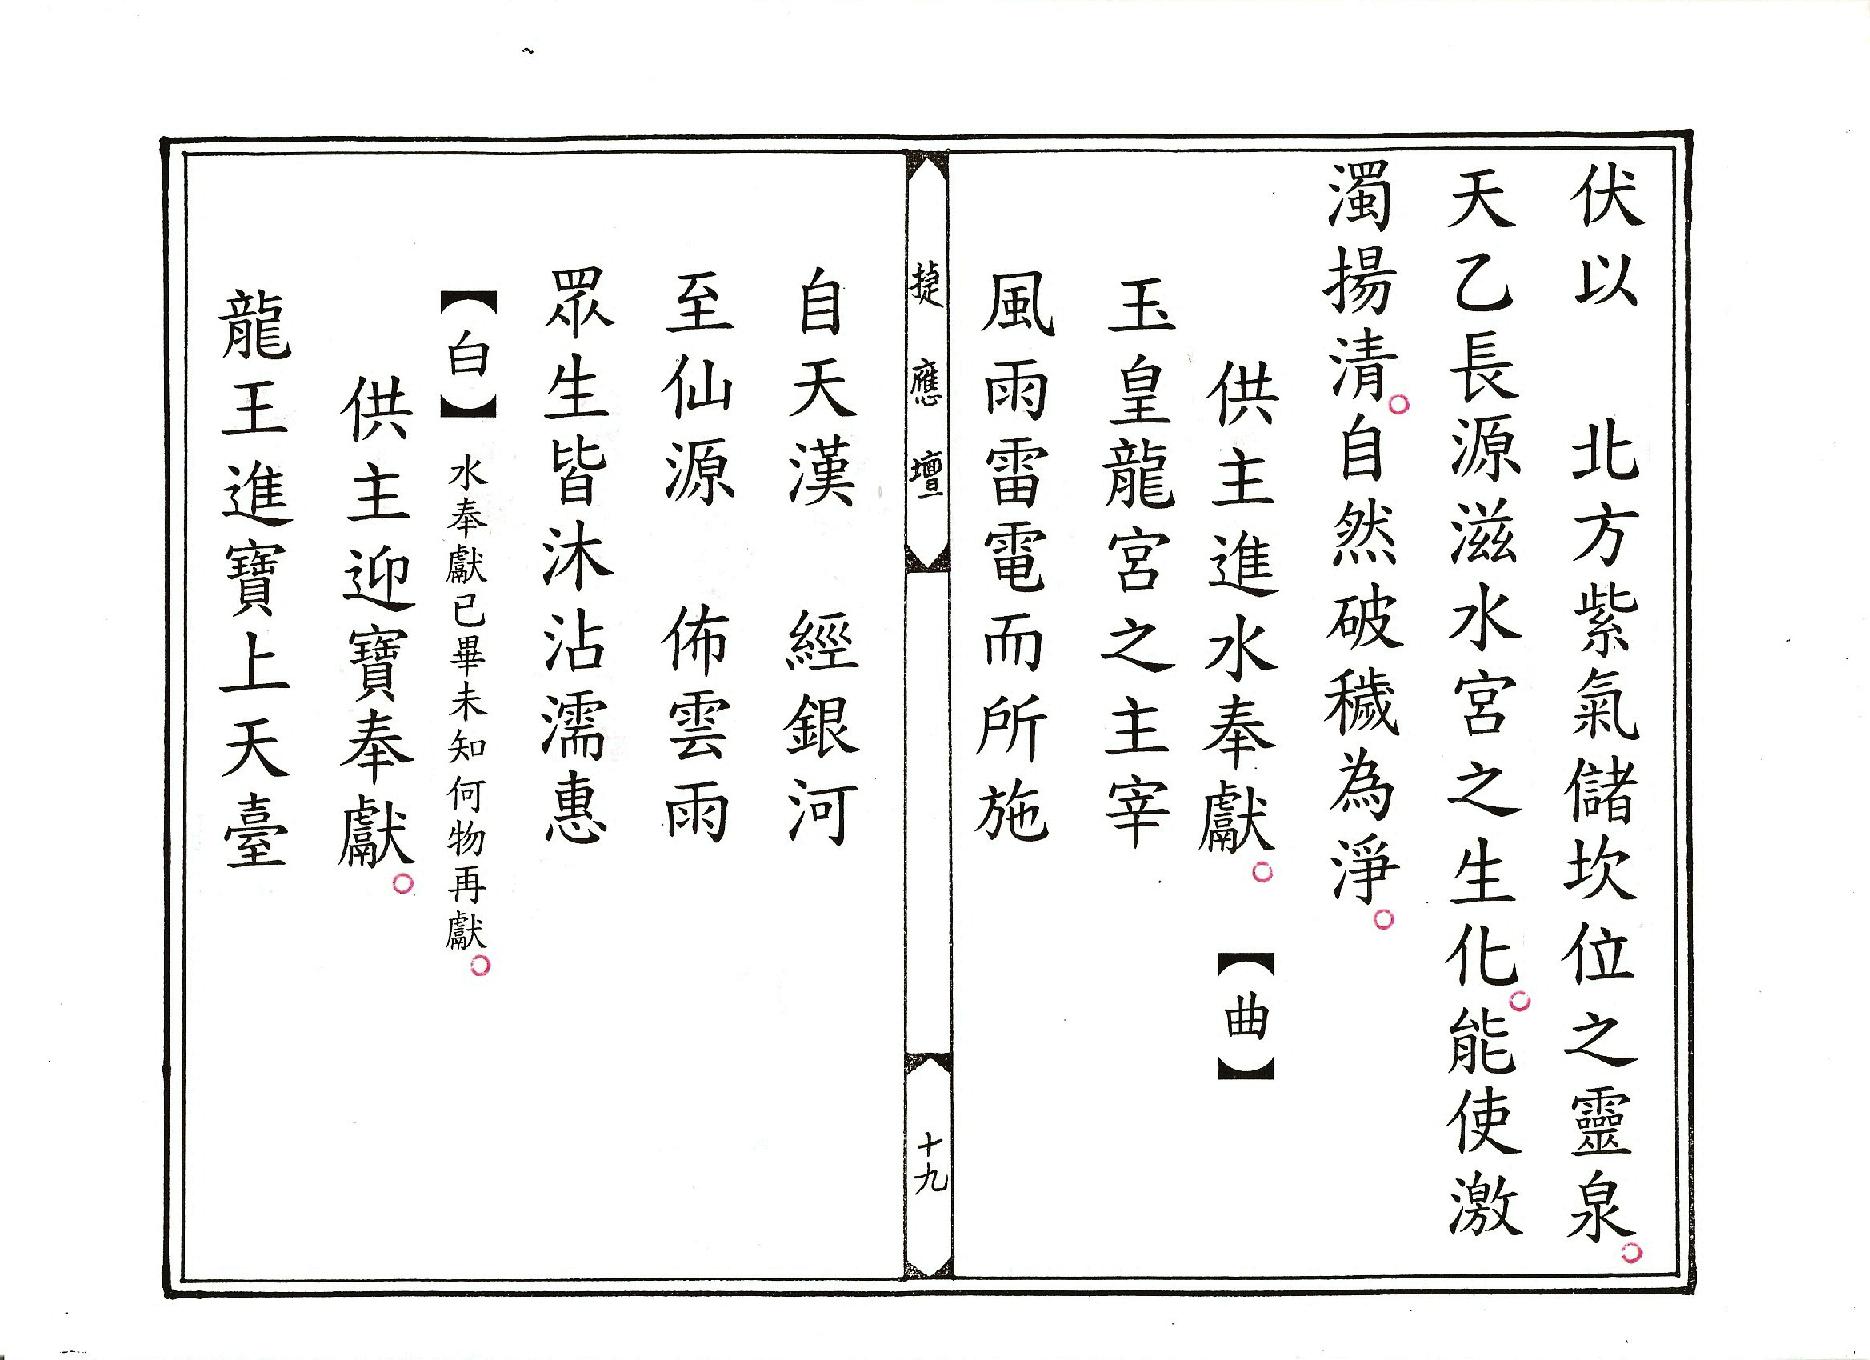 伏以　北方紫氣儲坎位之靈泉。
天乙長源滋水宮之生化。能使激
濁揚清。自然破穢為淨。
供主進水奉獻。【曲】
玉皇龍宮之主宰
風雨雷電而所施
捷應壇
十九
自天漢　經銀河
至仙源　佈雲雨
眾生皆沐沾濡惠
【白】水奉獻已畢未知何物再獻。
供主迎寶奉獻。
龍王進寶上天臺